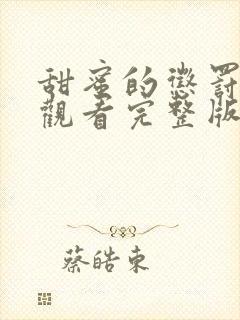 甜蜜的懲罰
觀看完整版
蔡皓東